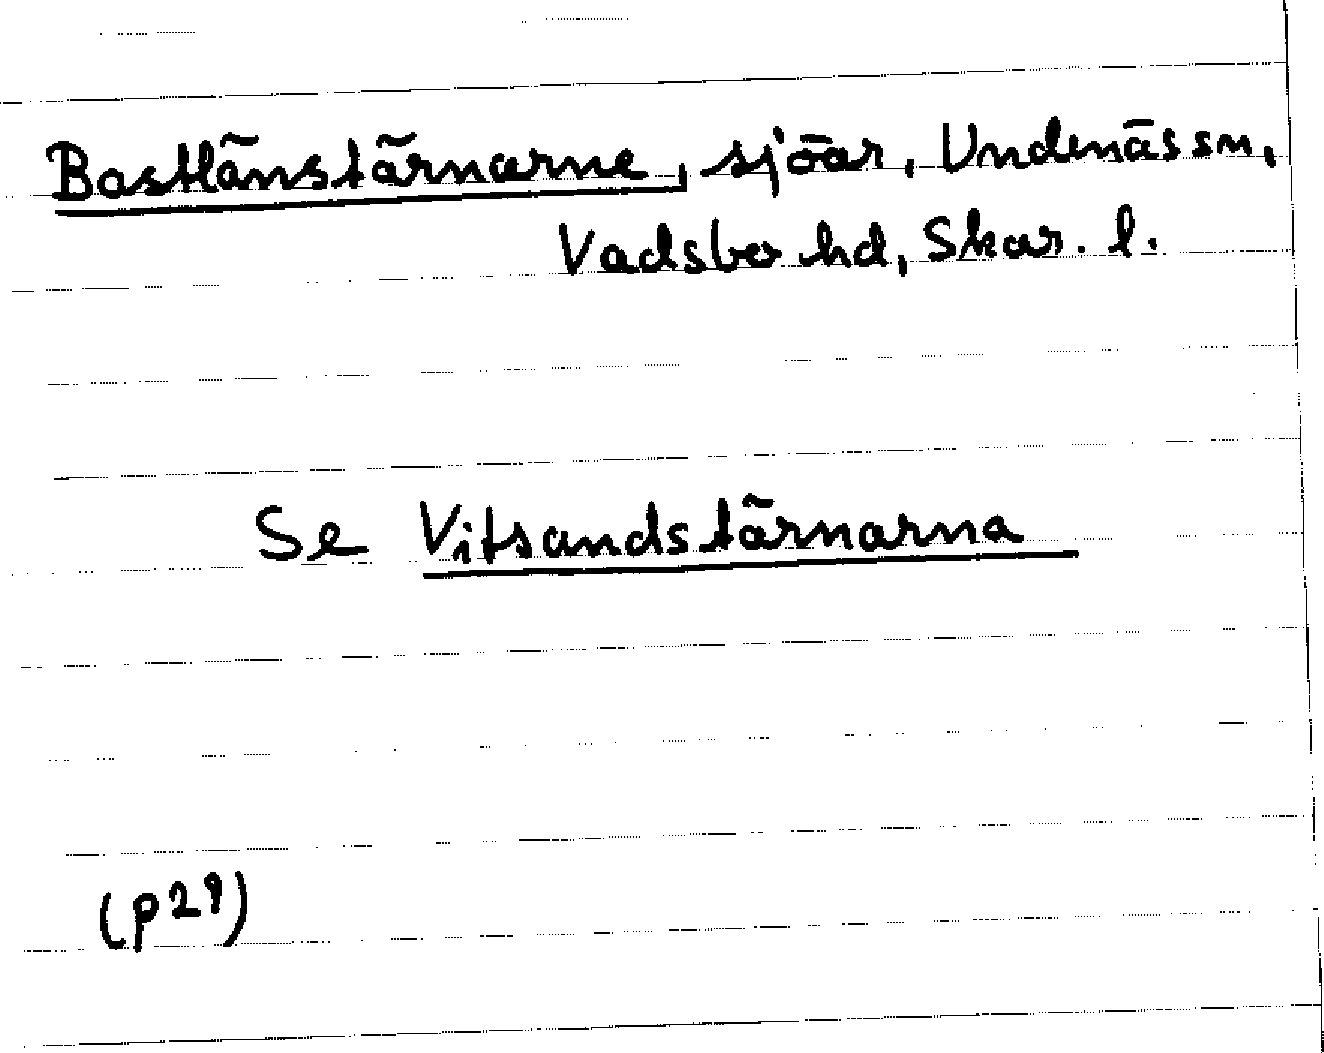 Bastlänstärnarne, sjöar, Undenäs sn,
Vadsbo hd, Skar. l.
Se Vitsandstärnarna
(p 29)